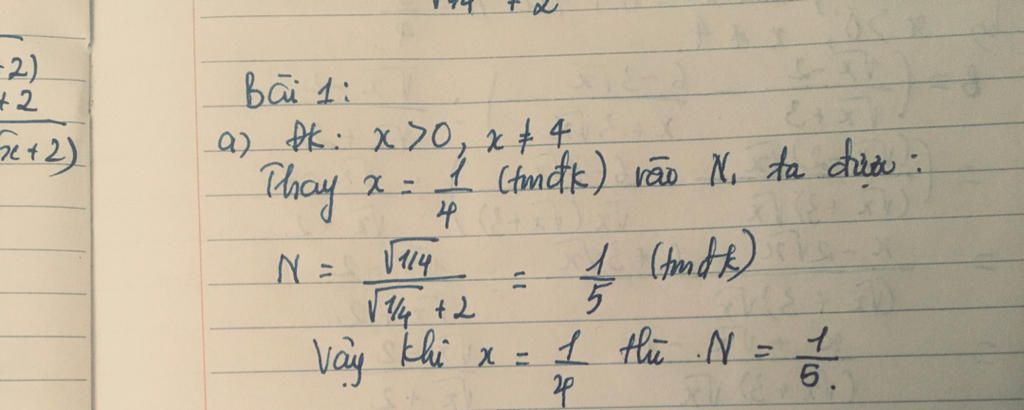 √1/4 + 2
-2)
+2
√x+2)
Bài 1:
a) ĐK: x > 0, x ≠ 4
Thay x = 1/4 (tmđk) vào N, ta được:
N = √1/4 / √1/4 + 2 = 1/5 (tmđk)
Vậy khi x = 1/4 thì N = 1/5.